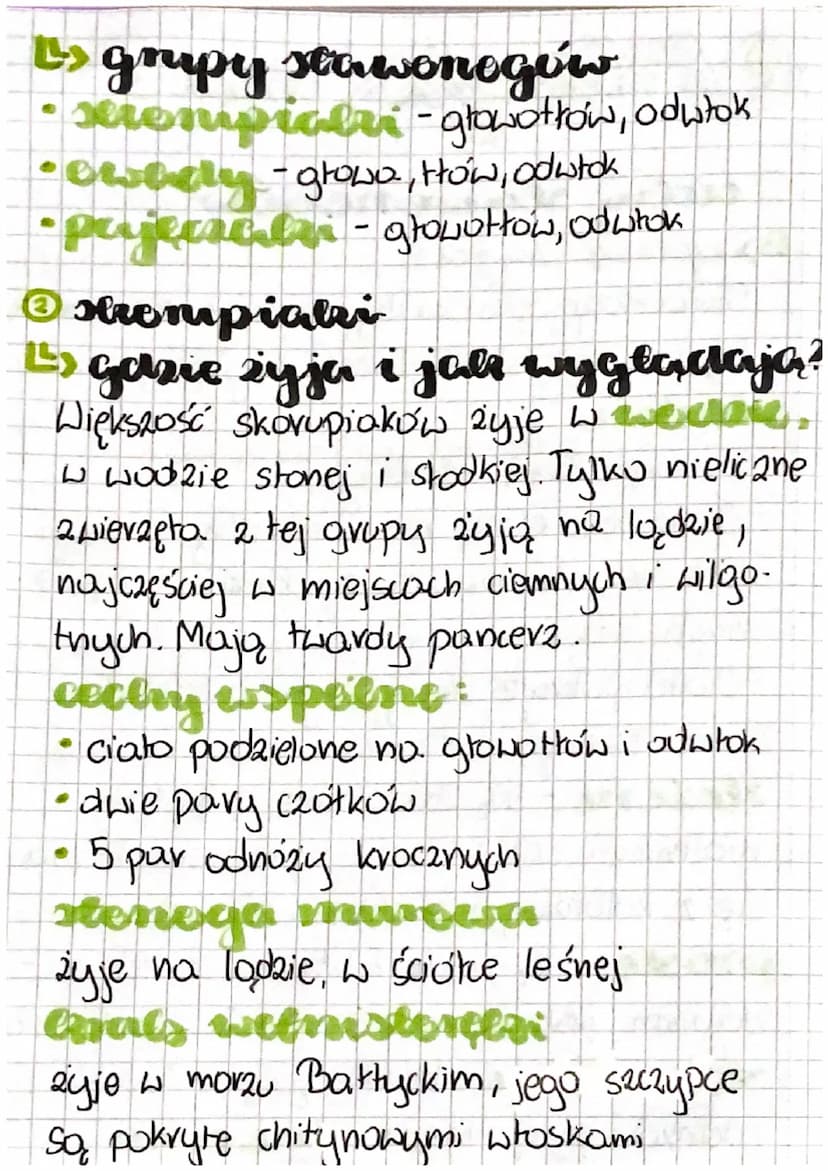 grupy stawonogów
• skorupiaki - głowotłów, odwłok
• owady - głowa, tłów, odwłok
• pajęczaki - głowotłów, odwłok
2 skorupiaki
gdzie żyją i jak wyglądają?
Większość skorupiaków żyje w wodzie.
w wodzie słonej i słodkiej. Tylko nieliczne
zwierzęta z tej grupy żyją na lądzie,
najczęściej w miejscach ciemnych i wilgo-
tnych. Mają twardy pancerz.
cechy wspólne:
• ciało podzielone na głowotłów i odwłok
• dwie pary czółków
• 5 par odnóży krocznych
stonoga murowa
żyje na lądzie, w ściółce leśnej
krab wełnistoręki
żyje w morzu Bałtyckim, jego szczypce
są pokryte chitynowymi włoskami